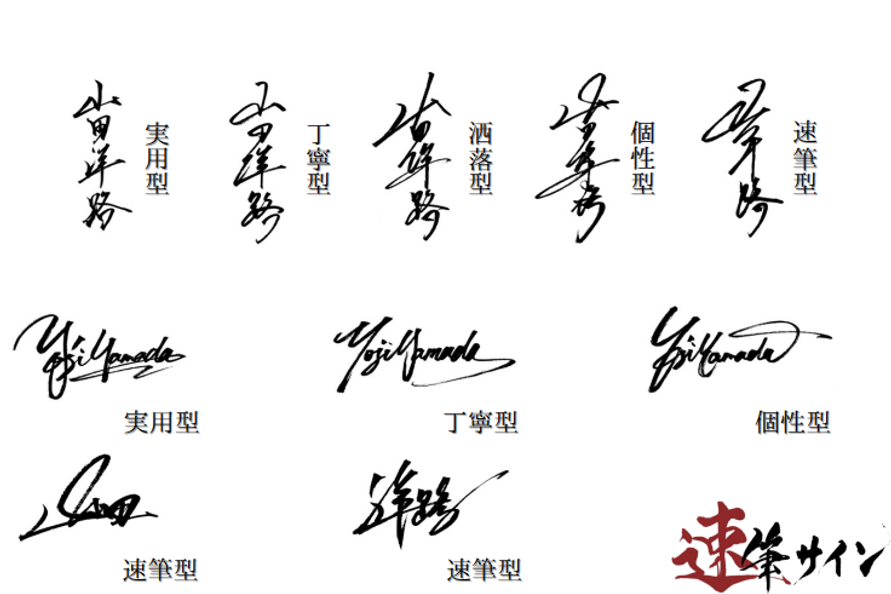 山田洋路
実用型
山田洋路
丁寧型
山田洋路
洒落型
山田洋路
個性型
山田洋路
速筆型
Yoji Yamada
Yoji Yamada
Yoji Yamada
実用型
丁寧型
個性型
山田
洋路
速筆型
速筆型
速筆サイン